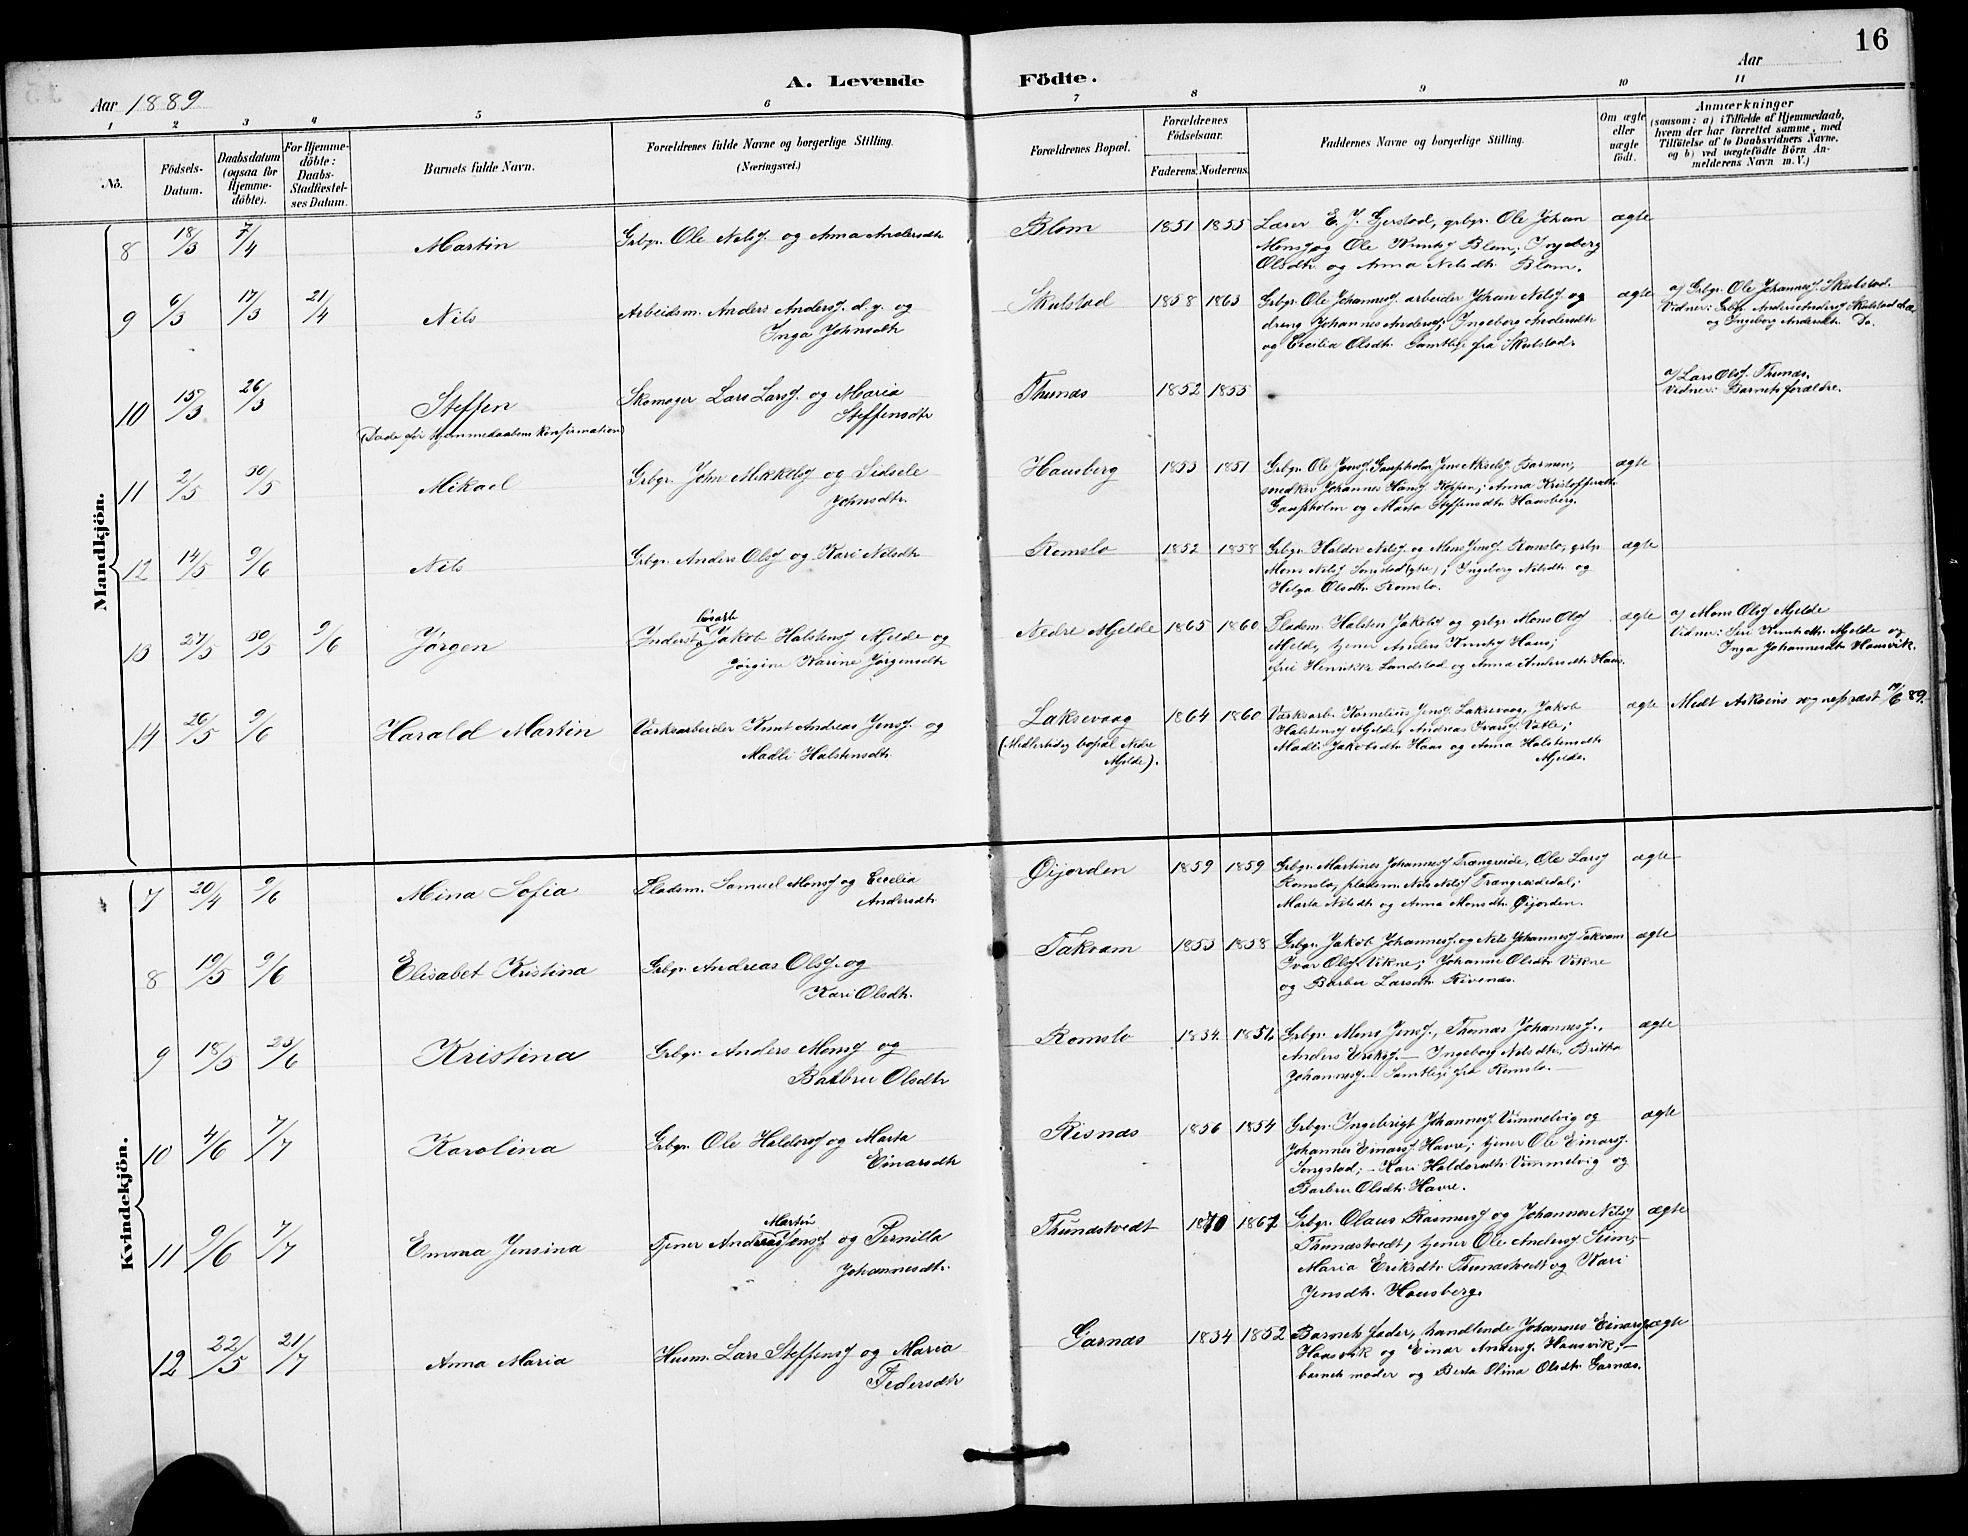 16
A. Levende Födte.
Aar 1889
Aar
1 2 3 4 5 6 7 8 9 10 11
No.
Födsels-Datum.
Daabsdatum (ogsaa for Hjemme-döbte).
For Hjemme-döbte: Daabs-Stadfæstel-ses Datum.
Barnets fulde Navn.
Forældrenes fulde Navne og borgerlige Stilling.
(Næringsvei.)
Forældrenes Bopæl.
Forældrenes Födselsaar.
Faderens. Moderens.
Faddernes Navne og borgerlige Stilling.
Om ægte eller uægte födt.
Anmærkninger
(saasom: a) i Tilfælde af Hjemmedaab,
hvem der har forrettet samme, med
Tilföielse af to Daabsvidners Navne,
og b) ved uægtefödte Börn An-
melderens Navn m. V.)
Mandkjön.
8 18/3 7/4 Martin Grbgr. Ole Nelsf. og Anna Andersdtr Blom 1851 1855 Lærer E. J. Gjerstad, grbgr. Ole Johan ægte
Monsf og Ole Knutsf Blom; Ingeborg
Olsdtr og Anna Nelsdtr. Blom.
9 6/3 17/3 21/4 Nils Arbeidsm. Anders Andersf. d.y. og
Inga Johnsdtr
Skulstad 1858 1863 Grbgr. Ole Johannesf. arbeider Johan Nelsf. og
dreng Johannes Andersf; Ingeborg Andersdtr
og Cecilia Olsdtr. Samtlige fra Skulstad.
ægte a) Grbgr. Ole Johannesf. Skulstad.
Vidner: Grbgr. Anders Andersf Skulstad
og Ingeborg Andersdtr. Do.
10 15/3 26/3 Steffen
(Døde før Hjemmedaabens konfirmation)
Skomager Lars Larsf. og Maria
Steffensdtr
Thunæs 1852 1855
a) Lars Olsf. Thunæs.
Vidner: Barnets forældre.
11 2/5 30/5 Mikael Grbgr. John Mikkelsf og Sidsele
Johnsdtr.
Hausberg 1853 1851 Grbgr. Ole Jonsf Gaupholm Jens Akselsf. Barmen,
snedker Johannes Hansf. Koppen; Anna Kristoffersdtr
Gaupholm og Marta Steffensdtr Hausberg.
ægte
12 14/5 9/6 Nils Grbgr. Anders Olsf og Kari Nilsdtr Romslo 1852 1858 Grbgr. Haldor Nelsf. og Mons Jensf. Romslo, grbgr
Mons Nelsf Songstad; Ingeborg Nelsdtr og
Helga Olsdtr. Romslo.
ægte
13 27/5 30/5 9/6 Jørgen Inderst Jakob Halstensf Mjelde og
Jørgine Karine Jørgensdtr
Nedre Mjelde 1865 1860 Pladsm. Halsten Jakobsf og grbgr Mons Olsf
Mjelde, tjener Anders Knutsf Haus;
frøi Henrikke Landstad og Anna Andersdtr Haus.
ægte a) Mons Olsf Mjelde
Vidner: Siri Knutsdtr. Mjelde og
Inga Johannesdtr Hausvik.
14 26/5 9/6 Harald Martin Værksarbeider Knut Andreas Jensf. og
Madli Halstensdtr.
Laksevaag
(Midlertidig bopæl Nedre
Mjelde).
1864 1860 Værksarb. Kornelius Jensf Laksevaag, Jakob
Halstensf Mjelde, Andreas Ivarsf. Vatle;
Madli Jakobsdtr. Haus og Anna Halstensdtr
Mjelde.
ægte Meldt Askøens sogneprest 11/6 89.
Kvindekjön.
7 20/4 9/6 Mina Sofia Pladsm. Samuel Monsf og Cecilia
Andersdtr.
Øijorden 1859 1859 Grbgr. Martines Johannesf Trængreide, Ole Larsf
Romslo, pladsm. Nels Nelsf Trængreidedal;
Marta Nilsdtr og Anna Monsdtr. Øijorden.
ægte
8 19/5 9/6 Elisabet Kristina Grbgr. Andreas Olsf. og
Kari Olsdtr.
Takvam 1853 1858 Grbgr. Jakob Johannesf. og Nils Johannesf Takvam
Ivar Olsf. Vikne; Johanne Olsdtr. Vikne
og Barbru Larsdtr. Rivenæs.
ægte
9 18/5 23/6 Kristina Grbgr. Anders Monsf og
Barbru Olsdtr
Romslo 1834 1856 Grbgr. Mons Jensf., Thomas Johannesf.,
Anders Eriksf. — Ingeborg Nilsdtr. Britha
Johannesf. — Samtlige fra Romslo. —
ægte
10 4/6 7/7 Karolina Grbgr. Ole Haldorsf og Marta
Einarsdtr
Risnæs 1856 1854 Grbgr. Ingebrigt Johannesf. Vimmelvig og
Johannes Einarsf Havre; tjener Ole Einarsf.
Songstad; — Kari Haldorsdtr. Vimmelvig og
Barbru Olsdtr. Havre.
ægte
11 9/6 7/7 Emma Jensina Tjener Martin Jensf og Pernilla
Johannesdtr.
Thunæstvedt 1870 1867 Grbgr. Olaus Rasmusf og Johannes Nilsf
Thunæstvedt, tjener Ole Andersf Seim; —
Maria Eriksdtr. Thunæstvedt og Kari
Jensdtr. Hausberg.
ægte
12 22/5 21/7 Anna Maria Husm. Lars Steffensf og Maria
Pedersdtr
Garnæs 1834 1852 Barnets fader, handlende Johannes Einarsf
Hausvik og Einar Andersf. Hausvik; —
barnets moder og Berta Olina Olsdtr. Garnæs.
ægte